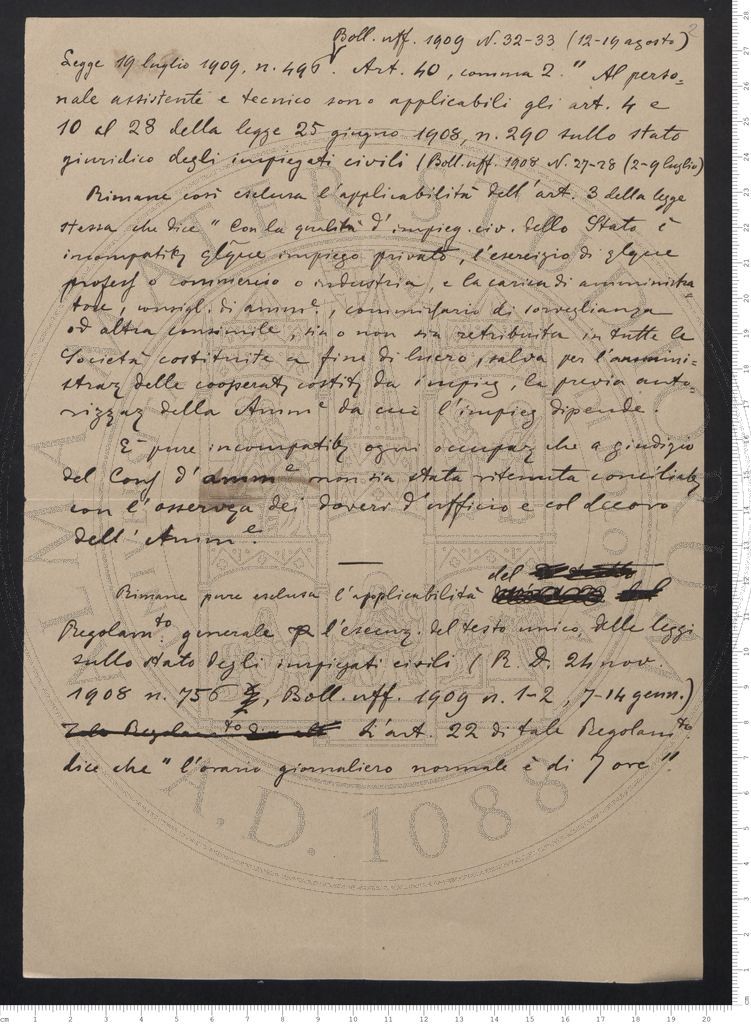 2
Boll. uff. 1909 N. 32-33 (12-19 agosto)
Legge 19 luglio 1909, n. 496. Art. 40, comma 2. "Al perso=
nale assistente e tecnico sono applicabili gli art. 4 e
10 al 28 della legge 25 giugno 1908, n. 290 sullo stato
giuridico degli impiegati civili (Boll. uff. 1908 N. 27-28 (2-9 luglio)
Rimane così esclusa l'applicabilità dell'art. 3 della legge
stessa che dice "Con la qualità d'impieg. civ. dello Stato è
incompatib glque impiego privato, l'esercizio di glque
profess o commercio o industria, e la carica di amministra
tore, consigl. di amm.e, commissario di sorveglianza
od altra consimile, sia o non sia retribuita in tutte le
Società costituite a fine di lucro, salva per l'ammini=
straz delle cooperat costit da impieg, la previa auto=
rizzaz della Amm.e da cui l'impieg dipende.
È pure incompatib ogni occupaz che a giudizio
del Cons d'amm.e non sia stata ritenuta conciliab
con l'osservza dei doveri d'ufficio e col decoro
dell'Amm.e
Rimane pure esclusa l'applicabilità del
Regolam.to generale p l'esecuz. del testo unico delle leggi
sullo stato degli impiegati civili (R. D. 24 nov.
1908 n. 756, Boll. uff. 1909 n. 1-2, 7-14 genn.)
L'art. 22 di tale Regolam.to
dice che "l'orario giornaliero normale è di 7 ore".
A.D. 1088